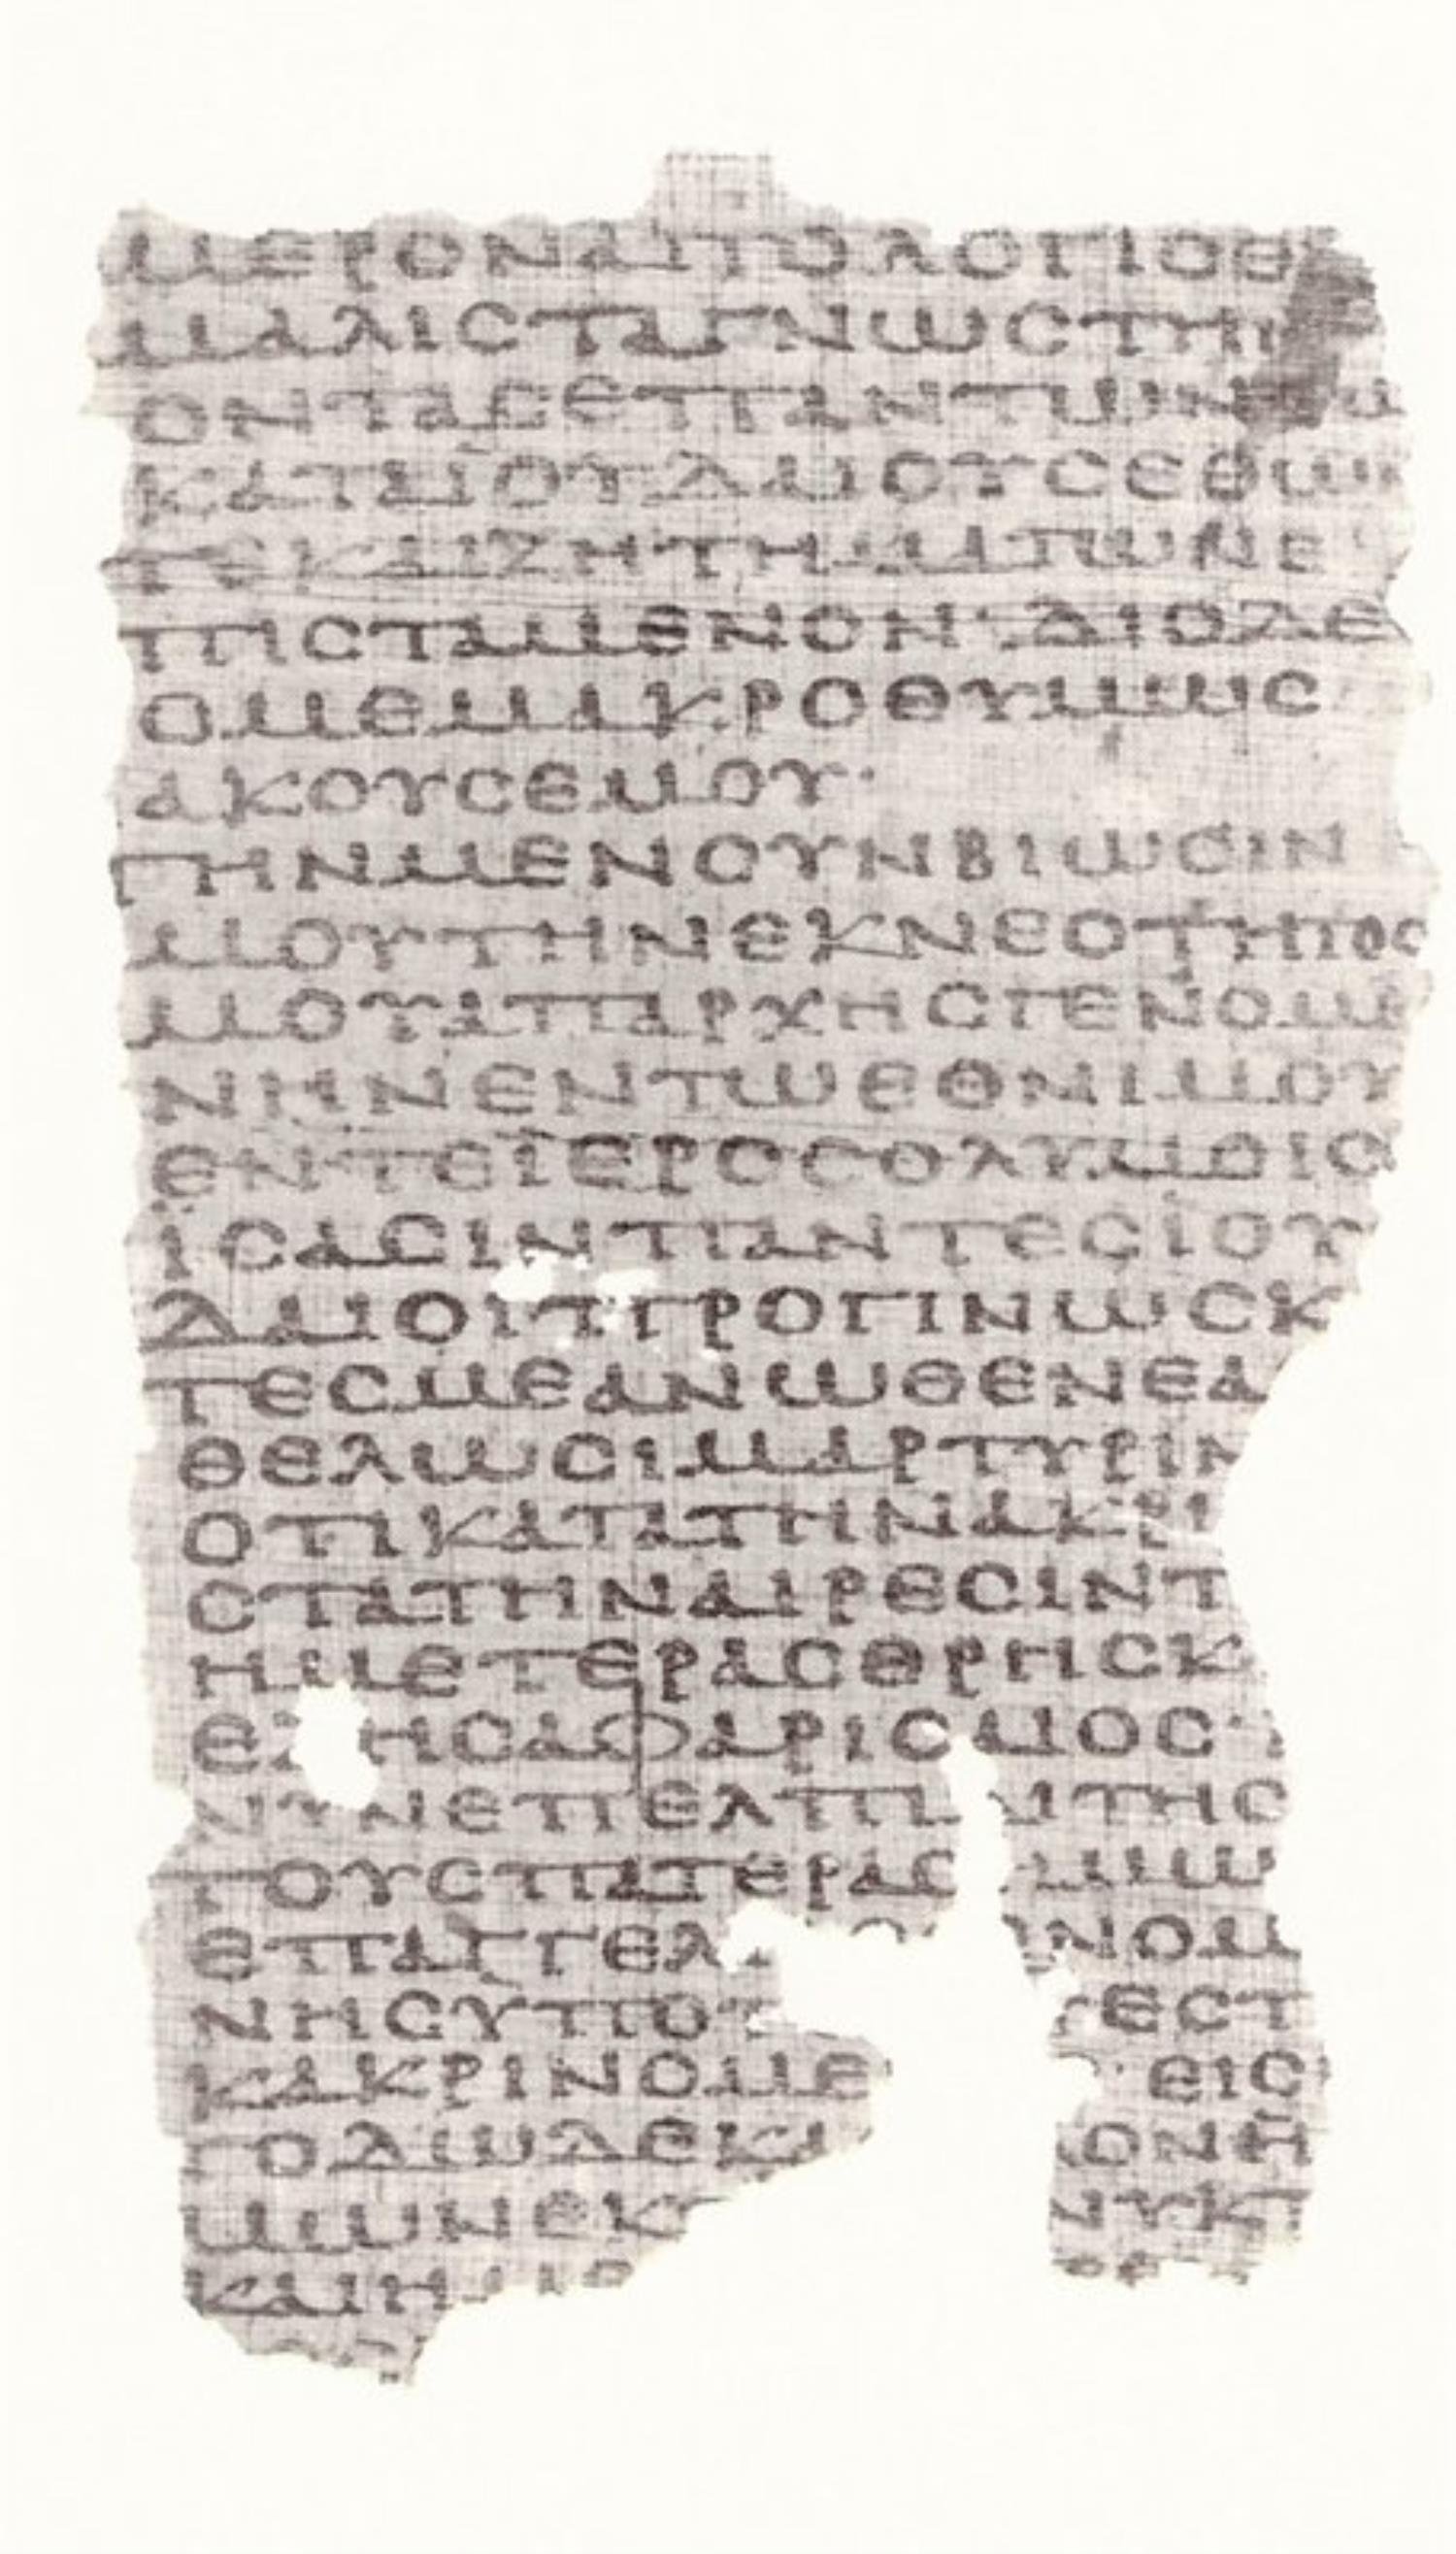 ΜΕΡΟΝΑΠΟΛΟΓΙΣΘ
ΜΑΛΙCΤΑΓΝΩCΤΗ
ΟΝΤΑCΕΠΑΝΤΩΝ
ΚΑΤΑΪΟΥΔΑΙΟΥCΕΘΩΝ
ΤΕΚΑΙΖΗΤΗΜΑΤΩΝΕ
ΠΙCΤΑΜΕΝΟΝ·ΔΙΟΔΕ
ΟΜΕΜΑΚΡΟΘΥΜΩC
ΑΚΟΥCΕΜΟΥ·
ΤΗΝΜΕΝΟΥΝΒΙΩCΙΝ
ΜΟΥΤΗΝΕΚΝΕΟΤΗΤΟC
ΜΟΥΑΠΑΡΧΗCΓΕΝΟΜΕ
ΝΗΝΕΝΤΩΕΘΝΙΜΟΥ
ΕΝΤΕΪΕΡΟCΟΛΥΜΟΙC
ΪCΑCΙΝΠΑΝΤΕCΪΟΥ
ΔΑΙΟΙΠΡΟΓΙΝΩCΚ
ΤΕCΜΕΑΝΩΘΕΝΕΑ
ΘΕΛΩCΙΜΑΡΤΥΡΙΝ
ΟΤΙΚΑΤΑΤΗΝΑΚΡΙ
CΤΑΤΗΝΑΙΡΕCΙΝΤ
ΗΜΕΤΕΡΑCΘΡΗCΚ
ΕΖΗCΑΦΑΡΙCΑΙΟC·
ΝΥΝΕΠΕΛΠΙ ΔΙΤΗC
ΤΟΥCΠΑΤΕΡΑC ΗΜΩ
ΕΠΑΓΓΕΛ ΝΟΜ
ΝΗCΥΠΟΤ ΕCΤ
ΚΑΚΡΙΝΟΜΕ ΕΙC
ΤΟΔΩΔΕΚΑ ΟΝΗ
ΜΩΝΕΚ ΝΥΚΤ
ΚΑΙΗ